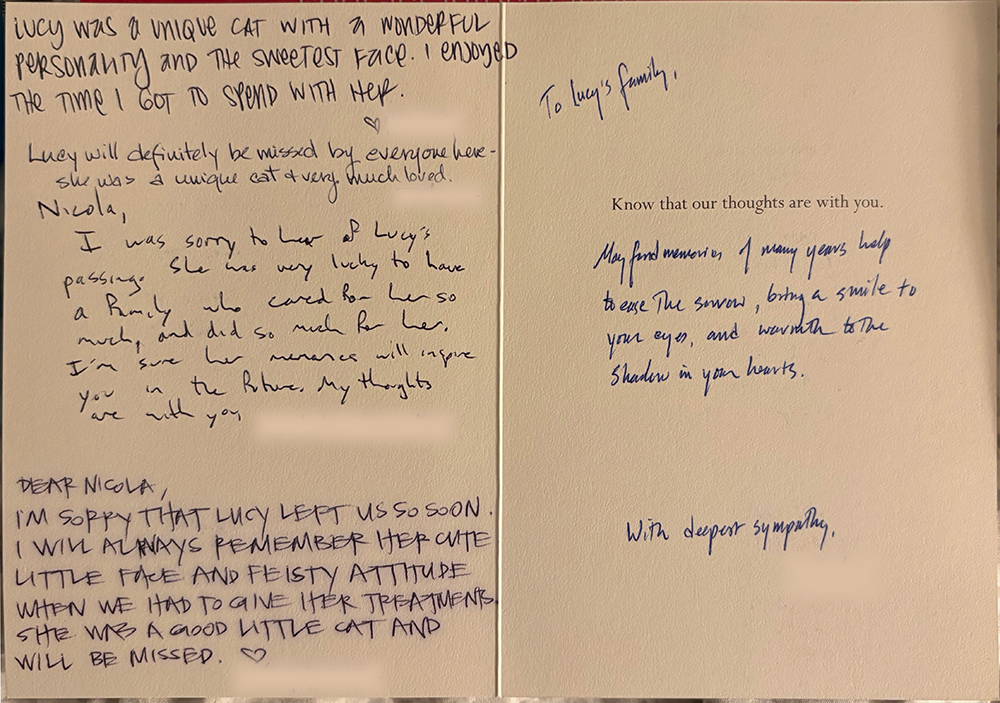 LUCY WAS A UNIQUE CAT WITH A WONDERFUL
PERSONALITY AND THE SWEETEST FACE. I ENJOYED
THE TIME I GOT TO SPEND WITH HER.
♡
Lucy will definitely be missed by everyone here -
she was a unique cat & very much loved.
Nicola,
I was sorry to hear of Lucy's
passing. She was very lucky to have
a family who cared for her so
much, and did so much for her.
I'm sure her memories will inspire
you in the future. My thoughts
are with you
DEAR NICOLA,
I'M SORRY THAT LUCY LEFT US SO SOON.
I WILL ALWAYS REMEMBER HER CUTE
LITTLE FACE AND FEISTY ATTITUDE
WHEN WE HAD TO GIVE HER TREATMENTS.
SHE WAS A GOOD LITTLE CAT AND
WILL BE MISSED. ♡
To Lucy's family,
Know that our thoughts are with you.
May fond memories of many years help
to ease the sorrow, bring a smile to
your eyes, and warmth to the
shadow in your hearts.
With deepest sympathy,